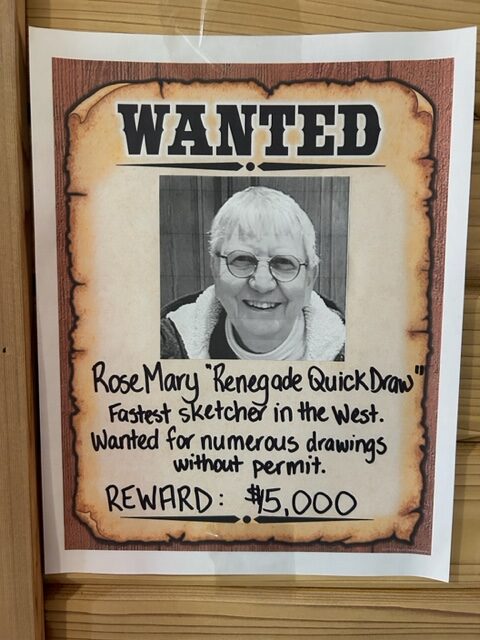 WANTED
RoseMary "Renegade QuickDraw"
Fastest sketcher in the West.
Wanted for numerous drawings
without permit.
REWARD: $15,000